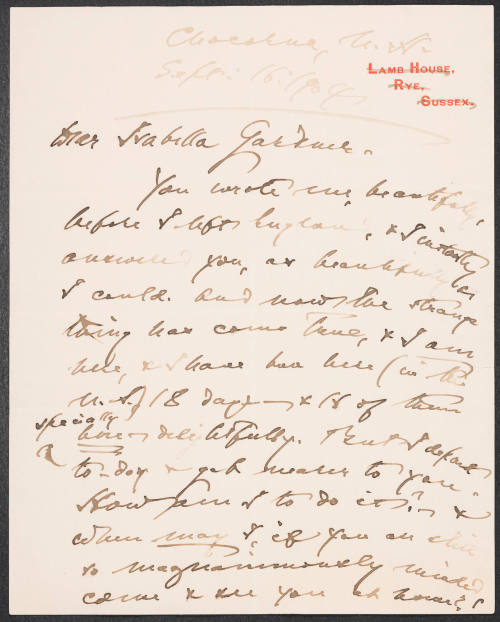 Chocorua, N.H.
Sept: 16: 1904
LAMB HOUSE,
RYE,
SUSSEX.
Dear Isabella Gardner.
You wrote me, beautifully,
before I left England, & I instantly
answered you, as beautifully as
I could. And now the strange
thing has come true, & I am
here, & I have been here (in the
U.S.) 18 days — & 15 of them
specially
here delightfully. But I depart
to-day & get nearer to you.
How am I to do it? — &
when may I, if you are still
so magnanimously minded
come & see you at home?